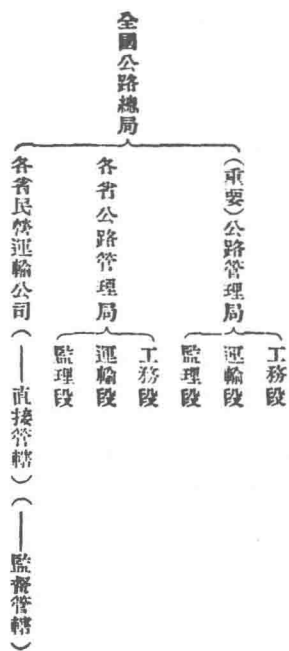 全國公路總局
（重要）公路管理局
工務段
運輸段
監理段
各省公路管理局
工務段
運輸段
監理段
各省民營運輸公司（——直接管轄）（——監督管轄）